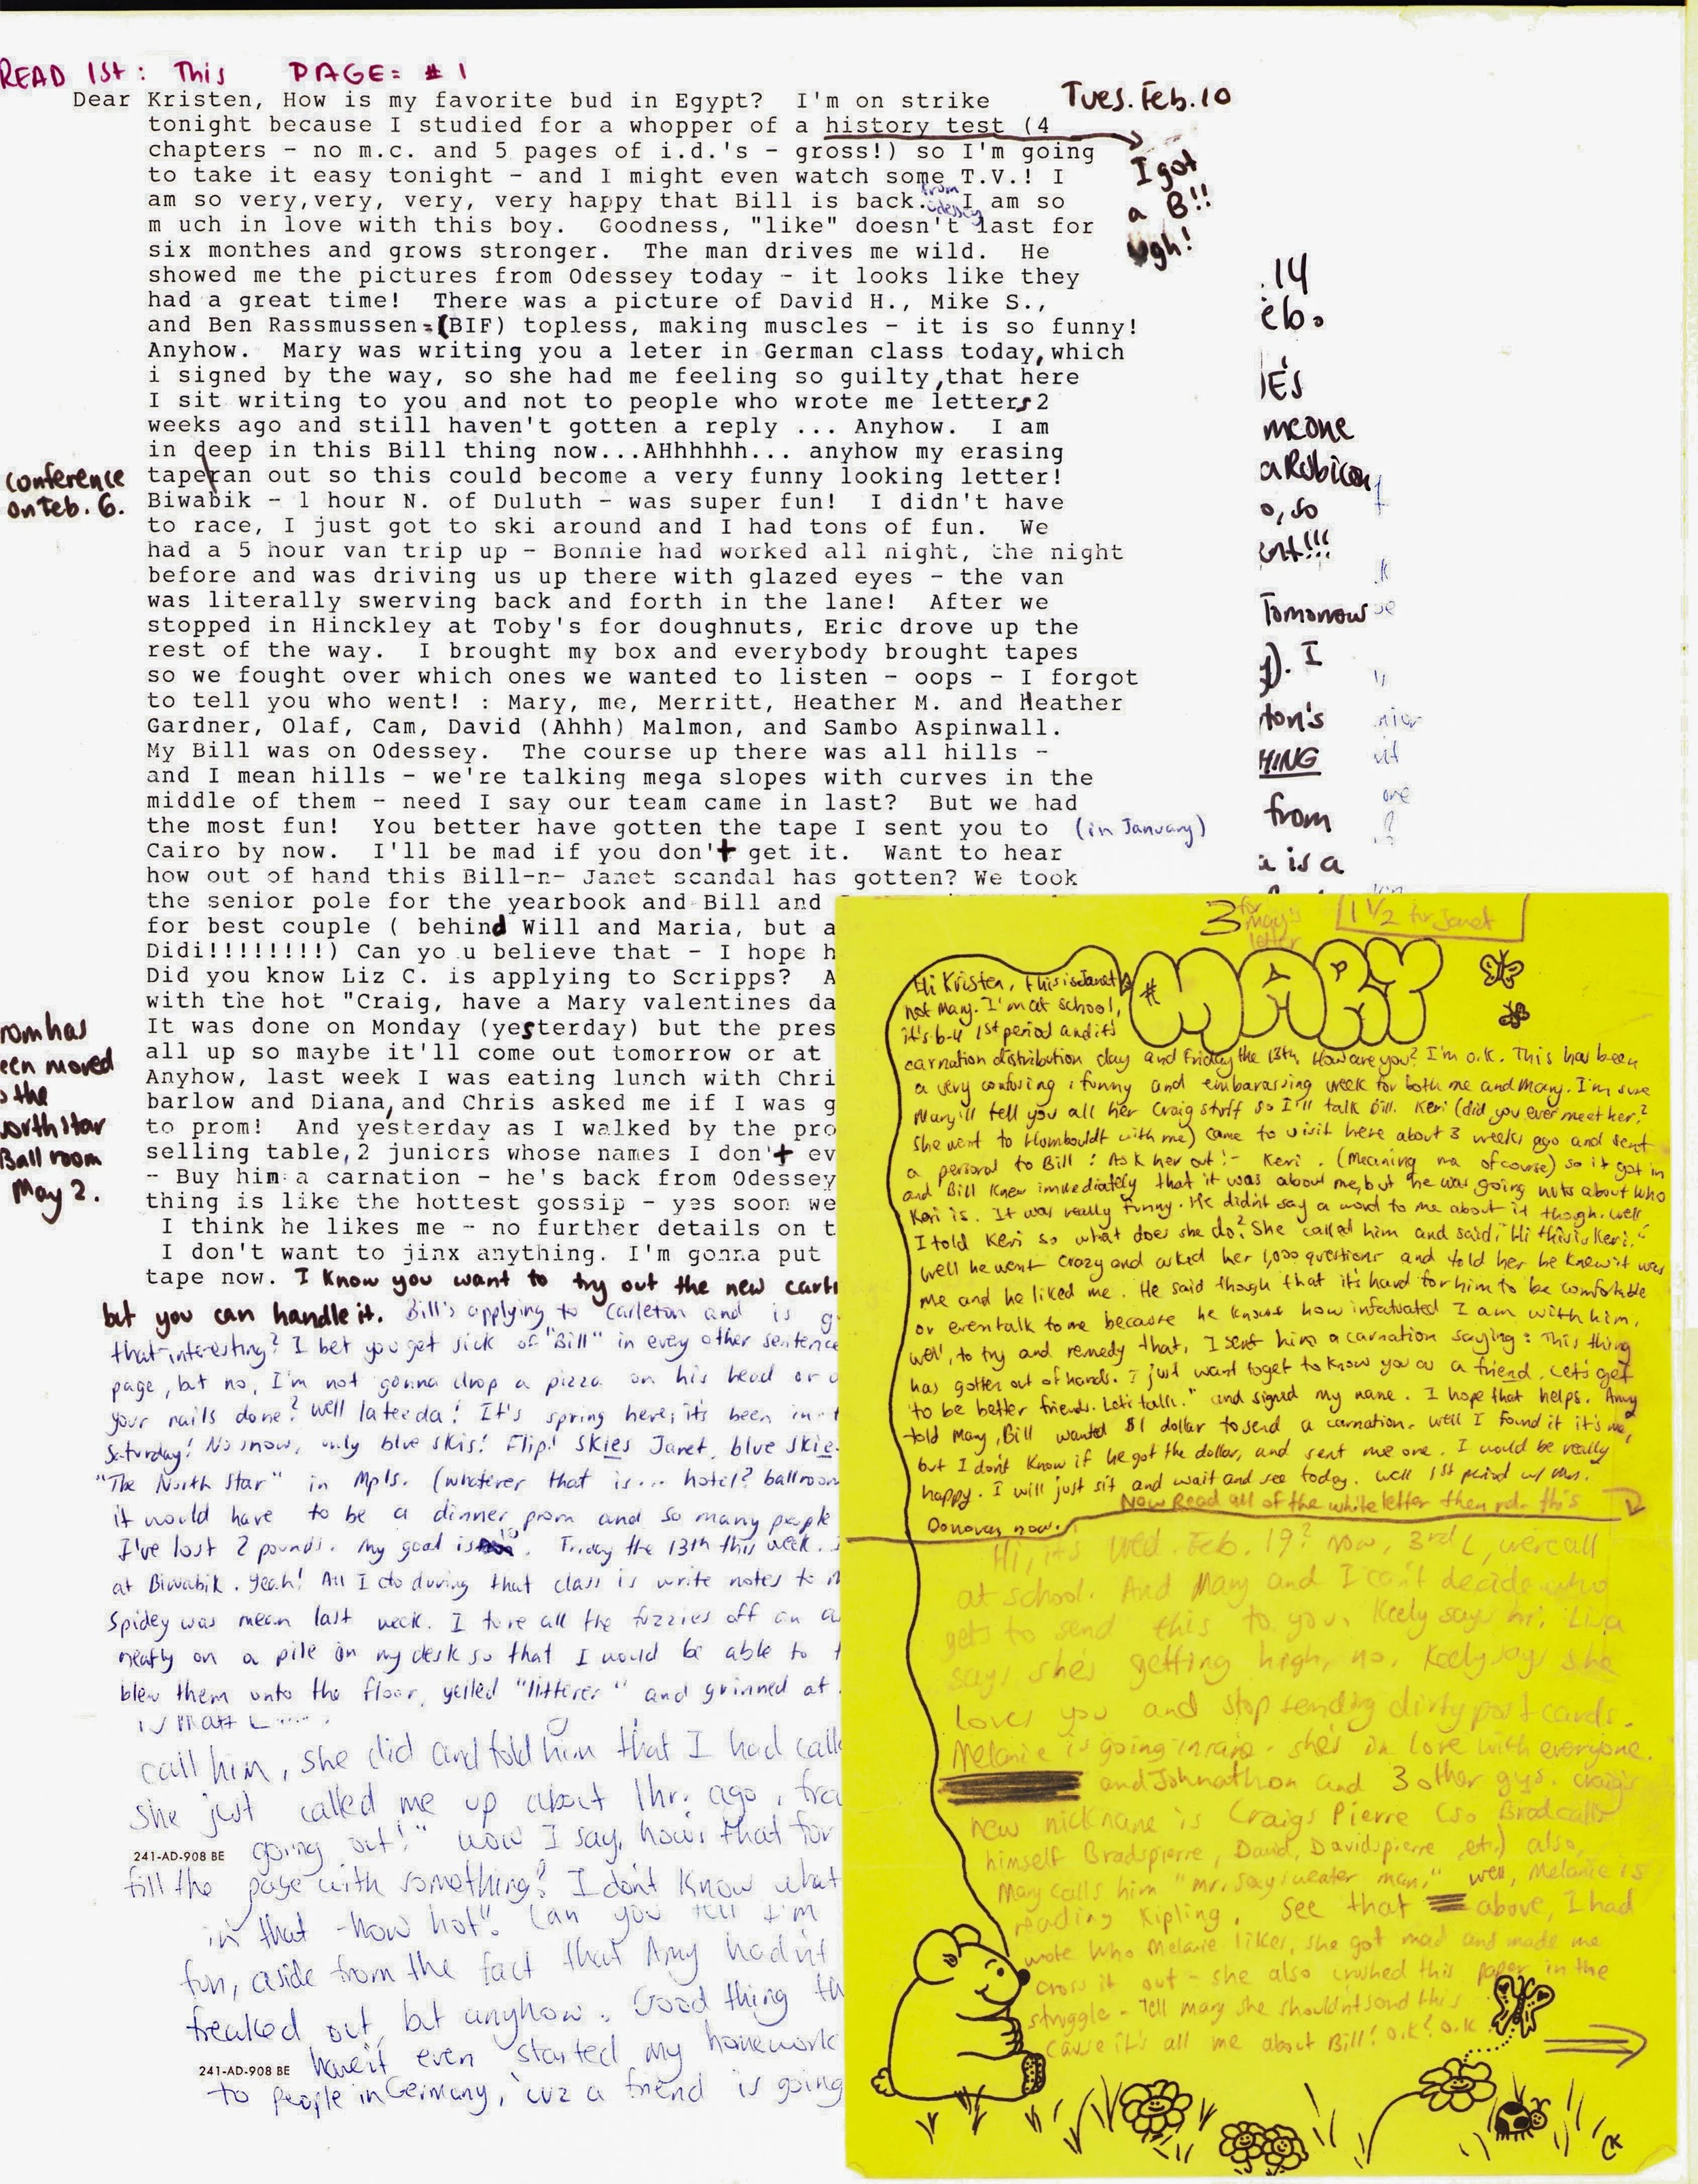 READ 1st: This PAGE= #1
Tues. Feb. 10
Dear Kristen, How is my favorite bud in Egypt? I'm on strike
tonight because I studied for a whopper of a history test (4
chapters - no m.c. and 5 pages of i.d.'s - gross!) so I'm going
to take it easy tonight - and I might even watch some T.V.! I
am so very,very, very, very happy that Bill is back. from Odessey I am so
m uch in love with this boy. Goodness, "like" doesn't last for
six monthes and grows stronger. The man drives me wild. He
showed me the pictures from Odessey today - it looks like they
had a great time! There was a picture of David H., Mike S.,
and Ben Rassmussen=(BIF) topless, making muscles - it is so funny!
Anyhow. Mary was writing you a leter in German class today, which
i signed by the way, so she had me feeling so guilty, that here
I sit writing to you and not to people who wrote me letters 2
weeks ago and still haven't gotten a reply ... Anyhow. I am
in deep in this Bill thing now...AHhhhhh... anyhow my erasing
tape ran out so this could become a very funny looking letter!
Biwabik - 1 hour N. of Duluth - was super fun! I didn't have
to race, I just got to ski around and I had tons of fun. We
had a 5 hour van trip up - Bonnie had worked all night, the night
before and was driving us up there with glazed eyes - the van
was literally swerving back and forth in the lane! After we
stopped in Hinckley at Toby's for doughnuts, Eric drove up the
rest of the way. I brought my box and everybody brought tapes
so we fought over which ones we wanted to listen - oops - I forgot
to tell you who went! : Mary, me, Merritt, Heather M. and Heather
Gardner, Olaf, Cam, David (Ahhh) Malmon, and Sambo Aspinwall.
My Bill was on Odessey. The course up there was all hills -
and I mean hills - we're talking mega slopes with curves in the
middle of them - need I say our team came in last? But we had
the most fun! You better have gotten the tape I sent you to (in January)
Cairo by now. I'll be mad if you don't get it. Want to hear
how out of hand this Bill-n- Janet scandal has gotten? We took
the senior pole for the yearbook and Bill and
for best couple ( behind Will and Maria, but a
Didi!!!!!!!!) Can yo u believe that - I hope h
Did you know Liz C. is applying to Scripps? A
with the hot "Craig, have a Mary valentines da
It was done on Monday (yesterday) but the pres
all up so maybe it'll come out tomorrow or at
Anyhow, last week I was eating lunch with Chri
barlow and Diana, and Chris asked me if I was g
to prom! And yesterday as I walked by the pro
selling table, 2 juniors whose names I don't ev
- Buy him a carnation - he's back from Odessey
thing is like the hottest gossip - yes soon we
I think he likes me - no further details on t
I don't want to jinx anything. I'm gonna put
tape now. I know you want to try out the new cart
but you can handle it. Bill's applying to Carleton and is g
that interesting? I bet you get sick of "Bill" in every other sentence
page, but no, I'm not gonna drop a pizza on his head or
your nails done? well lateeda! It's spring here, it's been in
Saturday! No snow, only blue skis! Flip! Skies Janet, blue skie
"The North Star" in Mpls. (whatever that is... hotel? ballroom
it would have to be a dinner prom and so many people
I've lost 2 pounds. My goal is 10. Friday the 13th this week.
at Biwabik. Yeah! All I do during that class is write notes to
Spidey was mean last week. I tore all the fuzzies off an
neatly on a pile on my desk so that I would be able to
blew them onto the floor, yelled "litterer" and grinned at
is Matt L.....
call him, she did and told him that I had call
she just called me up about 1hr. ago,
going out!" wow I say, hows that for
241-AD-908 BE
fill the page with something? I don't know what
in that - how hot! Can you tell I'm
fun, aside from the fact that Amy hadn't
freaked out, but anyhow. Good thing
haven't even started my homework
241-AD-908 BE
to people in Germany, cuz a friend is going
I got
a B!!
ugh!
conference
on Feb. 6.
rom has
een moved
o the
orth star
Ball room
May 2.
.14
eb.
IE's
meone
a Rubicon
o, so
ent!!!
Tomorrow
y). I
ton's
HING
from
a is a
3 for Mary's letter
1 1/2 for Janet
MARY
Hi Kristen, this is Janet
not Mary. I'm at school,
it's b-4 1st period and it's
carnation distribution day and Friday the 13th. How are you? I'm o.k. This has been
a very confusing, funny and embarassing week for both me and Mary. I'm sure
Mary'll tell you all her Craig stuff so I'll talk Bill. Keri (did you ever meet her?
She went to Hombouldt with me) came to visit here about 3 weeks ago and sent
a personal to Bill: Ask her out! - Keri. (Meaning me of course) so it got in
and Bill knew immediately that it was about me, but he was going nuts about who
Keri is. It was really funny. He didn't say a word to me about it though. Well
I told Keri so what does she do? She called him and said, "Hi this is Keri."
Well he went crazy and asked her 1,000 questions and told her he knew it was
me and he liked me. He said though that it's hard for him to be comfortable
or even talk to me because he knows how infatuated I am with him.
well, to try and remedy that, I sent him a carnation saying: "This thing
has gotten out of hands. I just want to get to know you as a friend. Let's get
to be better friends. Let's talk." and signed my name. I hope that helps. Amy
told Mary, Bill wanted $1 dollar to send a carnation. Well I found it it's me,
but I don't know if he got the dollar, and sent me one. I would be really
happy. I will just sit and wait and see today. Well 1st period w/ Mrs.
Donovan now.
Now Read all of the white letter then rd. this
Hi, it's Wed. Feb. 19? Now, 3rd L, we're all
at school. And Mary and I can't decide who
gets to send this to you. Keely says hi. Lisa
says she's getting high, no. Keely says she
loves you and stop sending dirty post cards.
Melanie is going insane. She's in love with everyone.
and Johnathon and 3 other guys. Craig's
new nickname is Craigs Pierre (so Brad calls
himself Bradspierre, David, Davidspierre, etc.) also,
Mary calls him "mr. sexy sweater man." well, Melanie is
reading Kipling. See that above, I had
wrote who Melanie likes, she got mad and made me
cross it out - she also crushed this paper in the
struggle - Tell Mary she shouldn't send this
cause it's all me about Bill! O.K? O.K
CK